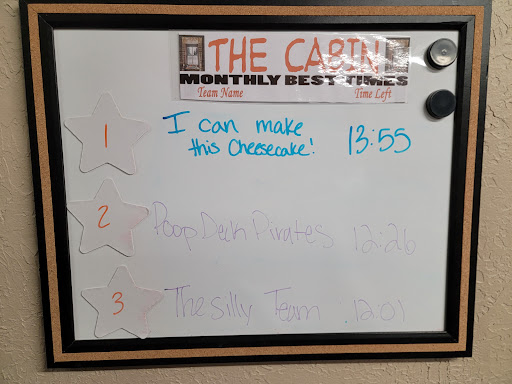 THE CABIN
MONTHLY BEST TIMES
Team Name Time Left
1 I can make this Cheesecake! 13:55
2 Poop Deck Pirates 12:26
3 The Silly Team 12:01